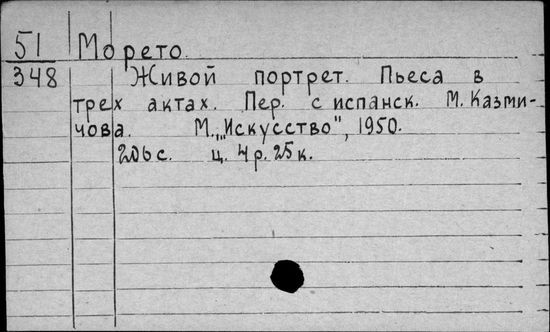 51 Морето.
348 Живой портрет. Пьеса в
трех актах. Пер. с испанск. М. Казми-
чова. М., „Искусство", 1950.
206 с. ц. 4 р. 25 к.